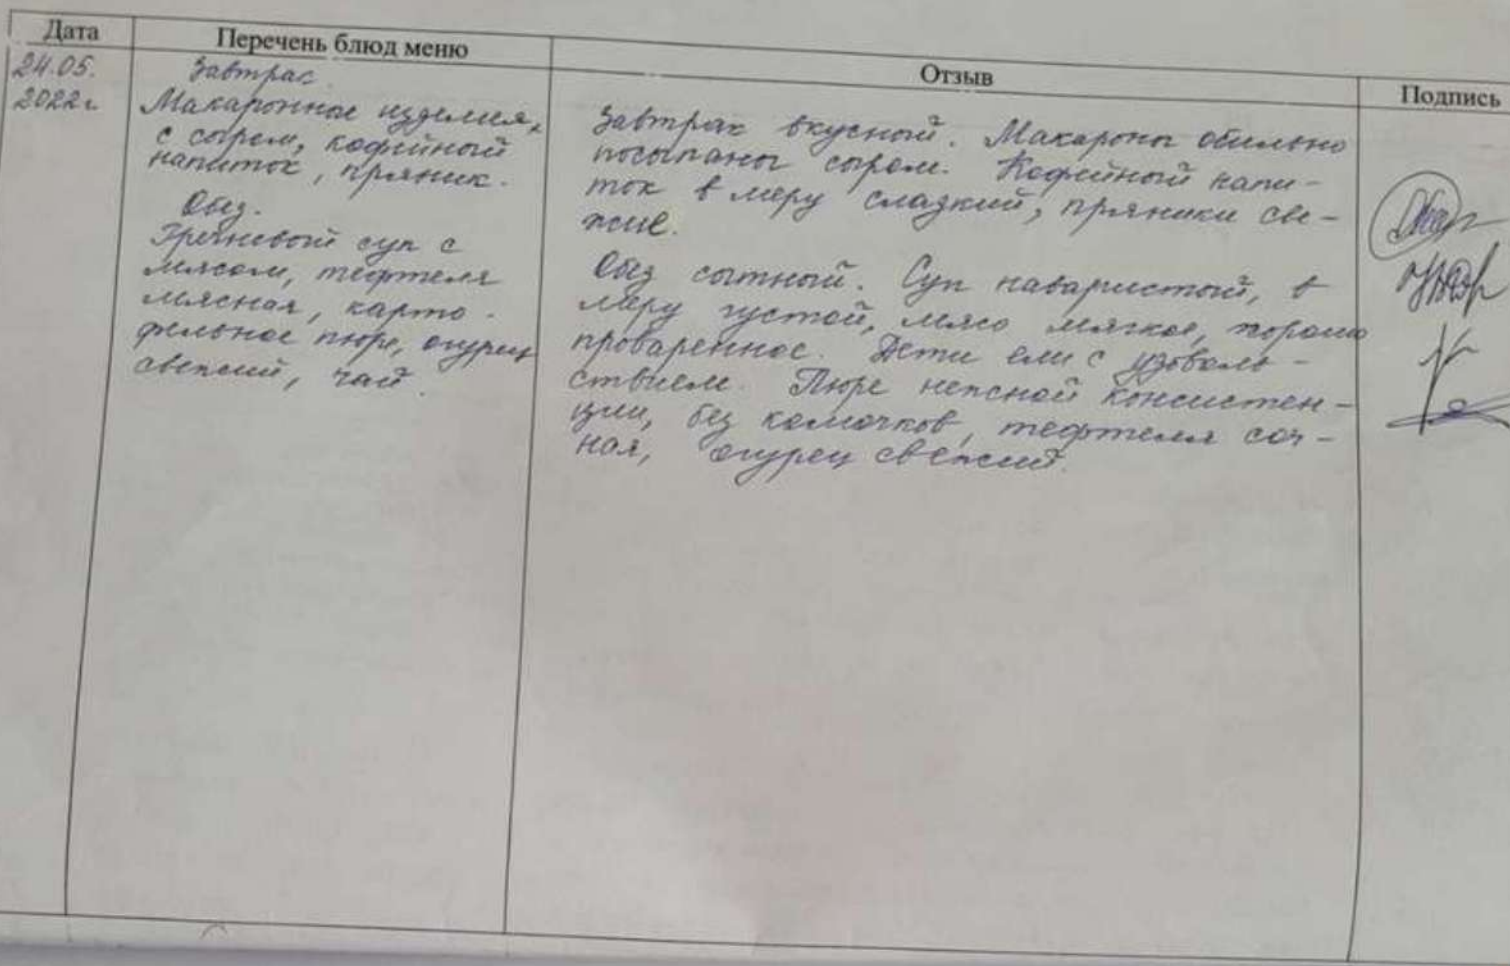 Дата Перечень блюд меню Отзыв Подпись
24.05.
2022г
Завтрак.
Макаронные изделия,
с сыром, кофейный
напиток, пряник.
Обед.
Гречневый суп с
мясом, тефтеля
мясная, карто-
фельное пюре, огурец
свежий, чай.
Завтрак вкусный. Макароны обильно
посыпаны сыром. Кофейный напи-
ток в меру сладкий, пряники све-
жие.
Обед сытный. Суп наваристый, в
меру густой, мясо мягкое, хорошо
проваренное. Дети ели с удоволь-
ствием. Пюре нежной консистен-
ции, без комочков, тефтеля соч-
ная, огурец свежий.